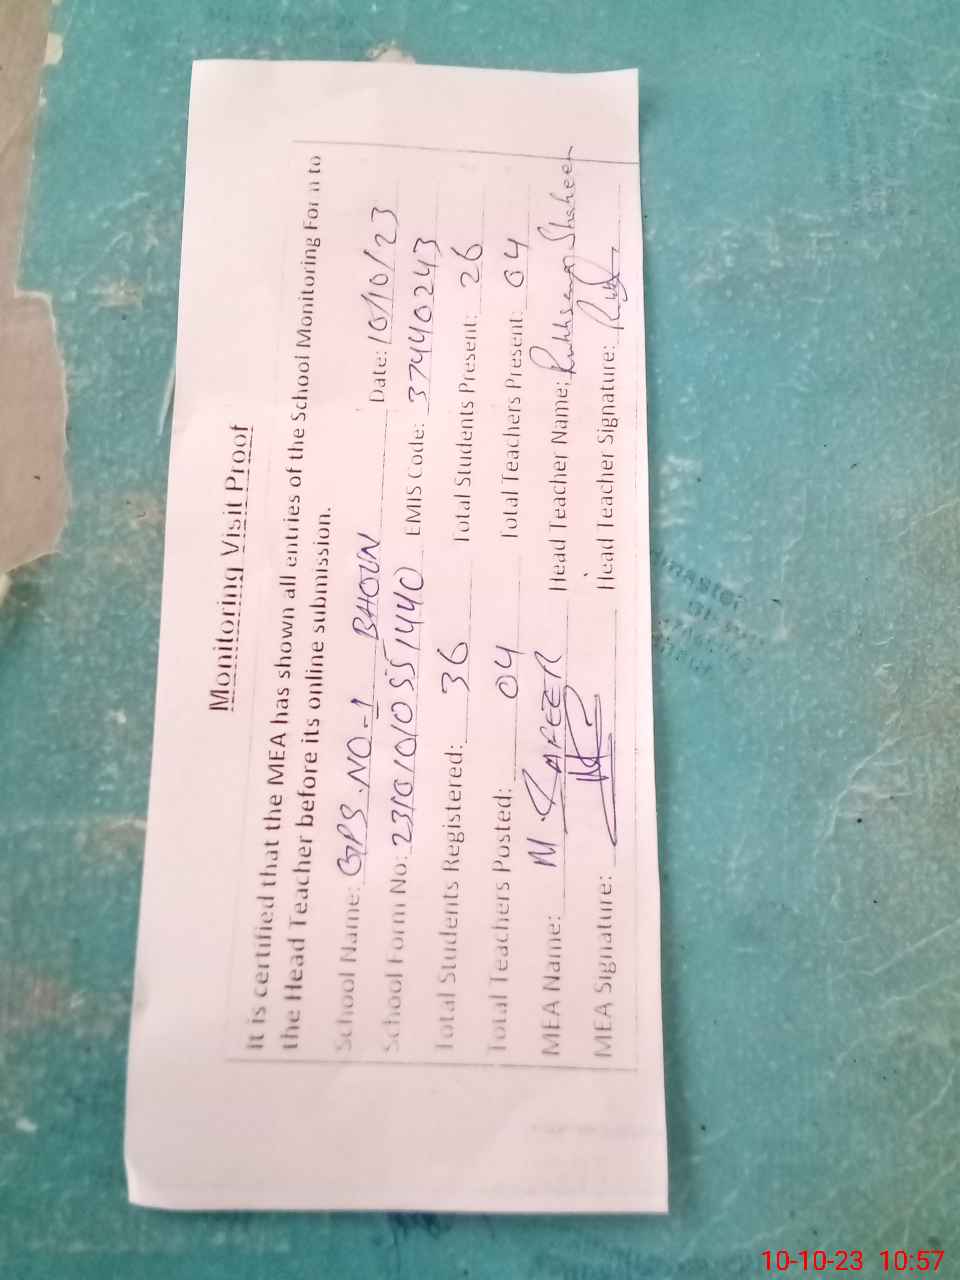 Monitoring Visit Proof
It is certified that the MEA has shown all entries of the School Monitoring Form to
the Head Teacher before its online submission.
School Name: GPS.NO-1 BHOUN Date: 10/10/23
School Form No: 23101010551440 EMIS Code: 37440243
Total Students Registered: 36 Total Students Present: 26
Total Teachers Posted: 04 Total Teachers Present: 04
MEA Name: M. Head Teacher Name: Shaheen
MEA Signature: Head Teacher Signature:
10-10-23 10:57